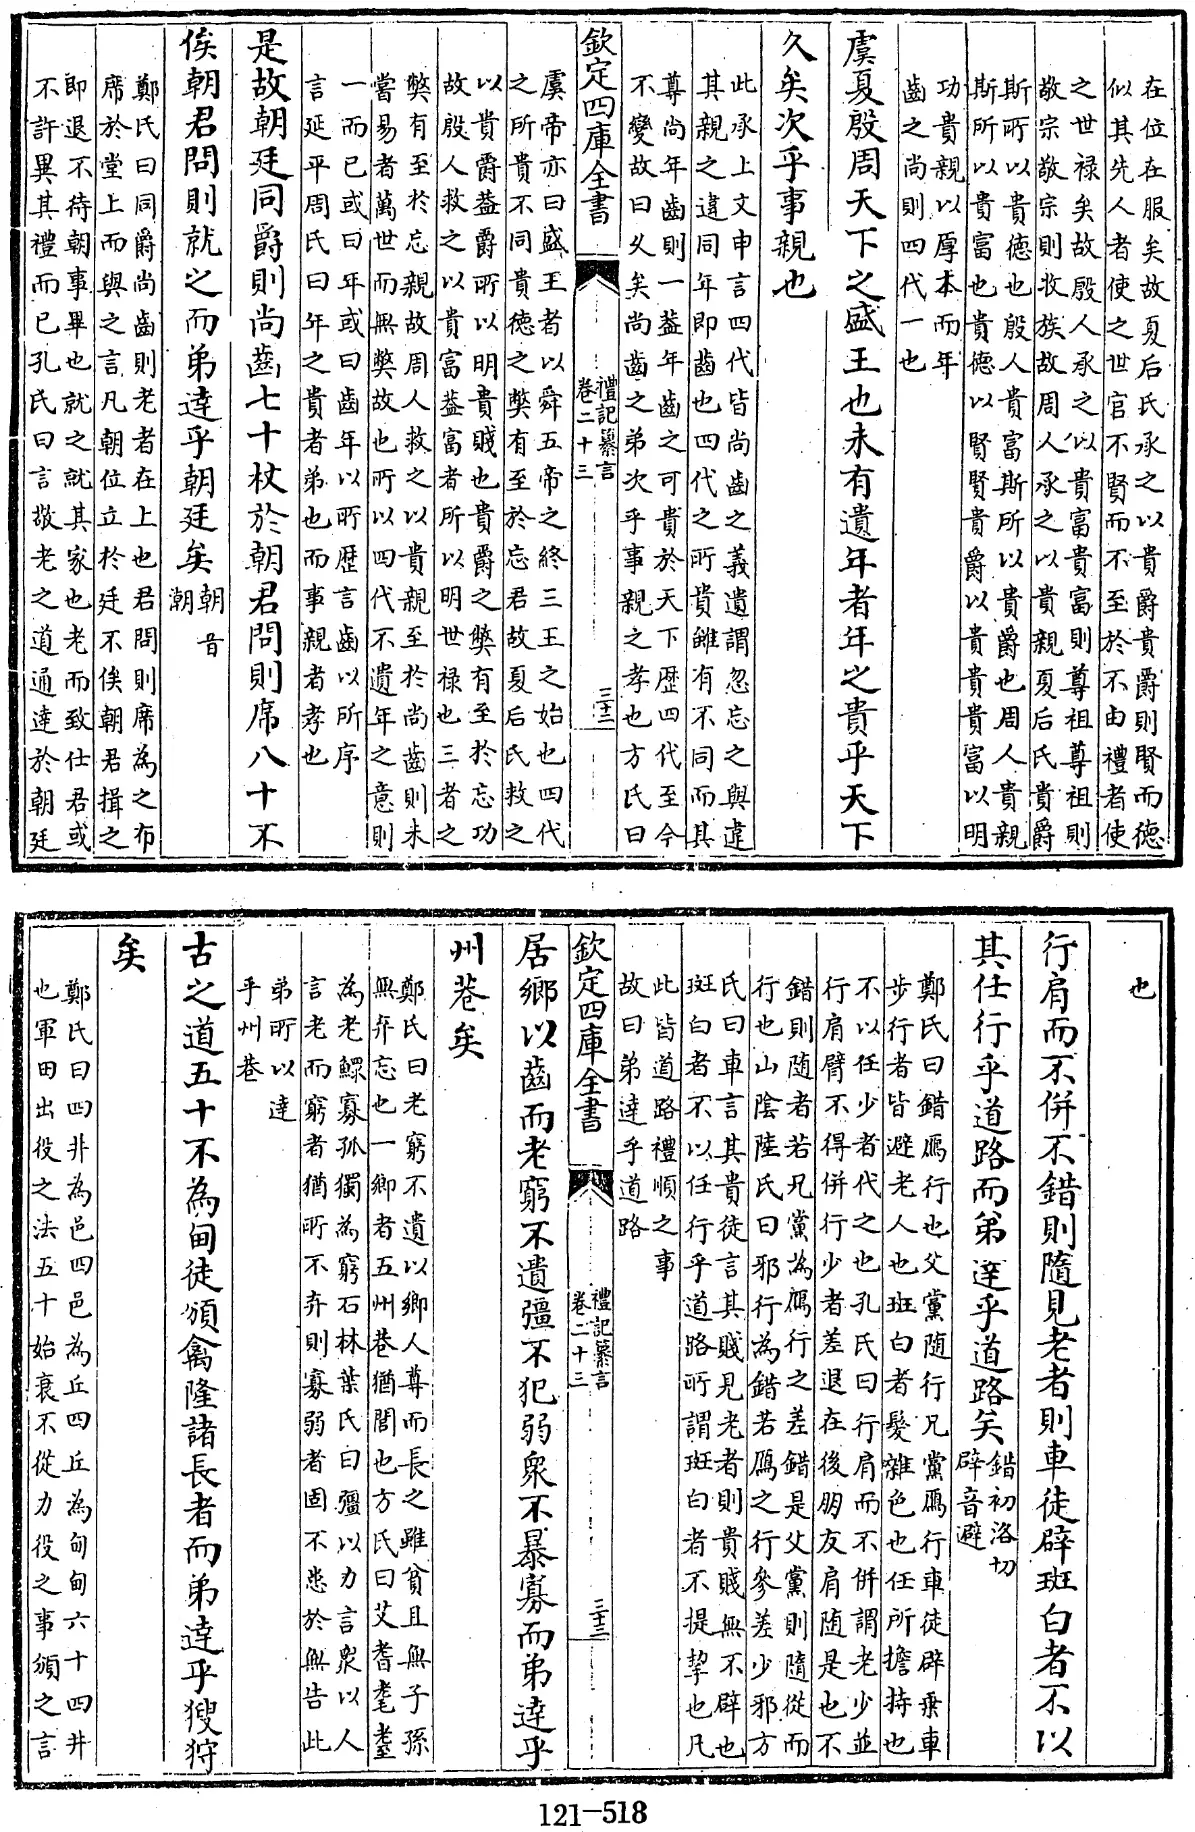 在位在服矣故夏后氏承之以貴爵貴爵則賢而德
似其先人者使之世官不賢而不至於不由禮者使
之世禄矣故殷人承之以貴富貴富則尊祖尊祖則
敬宗敬宗則收族故周人承之以貴親夏后氏貴爵
斯所以貴德也殷人貴富斯所以貴爵也周人貴親
斯所以貴富也貴德以賢賢貴爵以貴貴貴富以明
功貴親以厚本而年
齒之尚則四代一也
虞夏殷周天下之盛王也未有遺年者年之貴乎天下
久矣次乎事親也
此承上文申言四代皆尚齒之義遺謂忽忘之與違
其親之違同年即齒也四代之所貴雖有不同而其
尊尚年齒則一葢年齒之可貴於天下歴四代至今
不變故曰乆矣尚齒之弟次乎事親之孝也方氏曰
欽定四庫全書
禮記纂言
卷二十三
三十二
虞帝亦曰盛王者以舜五帝之終三王之始也四代
之所貴不同貴德之獘有至於忘君故夏后氏救之
以貴爵葢爵所以明貴賤也貴爵之獘有至於忘功
故殷人救之以貴富葢富者所以明世禄也三者之
獘有至於忘親故周人救之以貴親至於尚齒則未
嘗易者萬世而無獘故也所以四代不遺年之意則
一而已或曰年或曰齒年以所歴言齒以所序
言延平周氏曰年之貴者弟也而事親者孝也
是故朝廷同爵則尚齒七十杖於朝君問則席八十不
俟朝君問則就之而弟達乎朝廷矣朝音潮
鄭氏曰同爵尚齒則老者在上也君問則席為之布
席於堂上而與之言凡朝位立於廷不俟朝君揖之
即退不待朝事畢也就之就其家也老而致仕君或
不許異其禮而已孔氏曰言敬老之道通達於朝廷
也
行肩而不併不錯則隨見老者則車徒辟斑白者不以
其任行乎道路而弟達乎道路矣錯初洛切辟音避
鄭氏曰錯鴈行也父黨随行兄黨鴈行車徒辟乗車
步行者皆避老人也斑白者髮雜色也任所擔持也
不以任少者代之也孔氏曰行肩而不併謂老少並
行肩臂不得併行少者差退在後朋友肩随是也不
錯則随者若兄黨為鴈行之差錯是父黨則隨從而
行也山陰陸氏曰邪行為錯若鴈之行參差少邪方
氏曰車言其貴徒言其賤見老者則貴賤無不辟也
斑白者不以任行乎道路所謂斑白者不提挈也凡
此皆道路禮順之事
故曰弟達乎道路
欽定四庫全書
禮記纂言
卷二十三
三十三
居鄉以齒而老窮不遺彊不犯弱衆不暴寡而弟達乎
州巷矣
鄭氏曰老窮不遺以鄉人尊而長之雖貧且無子孫
無弃忘也一鄉者五州巷猶閭也方氏曰艾耆耄耋
為老鰥寡孤獨為窮石林葉氏曰彊以力言衆以人
言老而窮者猶所不弃則寡弱者固不患於無告此
弟所以達
乎州巷
古之道五十不為甸徒頒禽隆諸長者而弟達乎獀狩
矣
鄭氏曰四井為邑四邑為丘四丘為甸甸六十四井
也軍田出役之法五十始衰不從力役之事頒之言
121-518